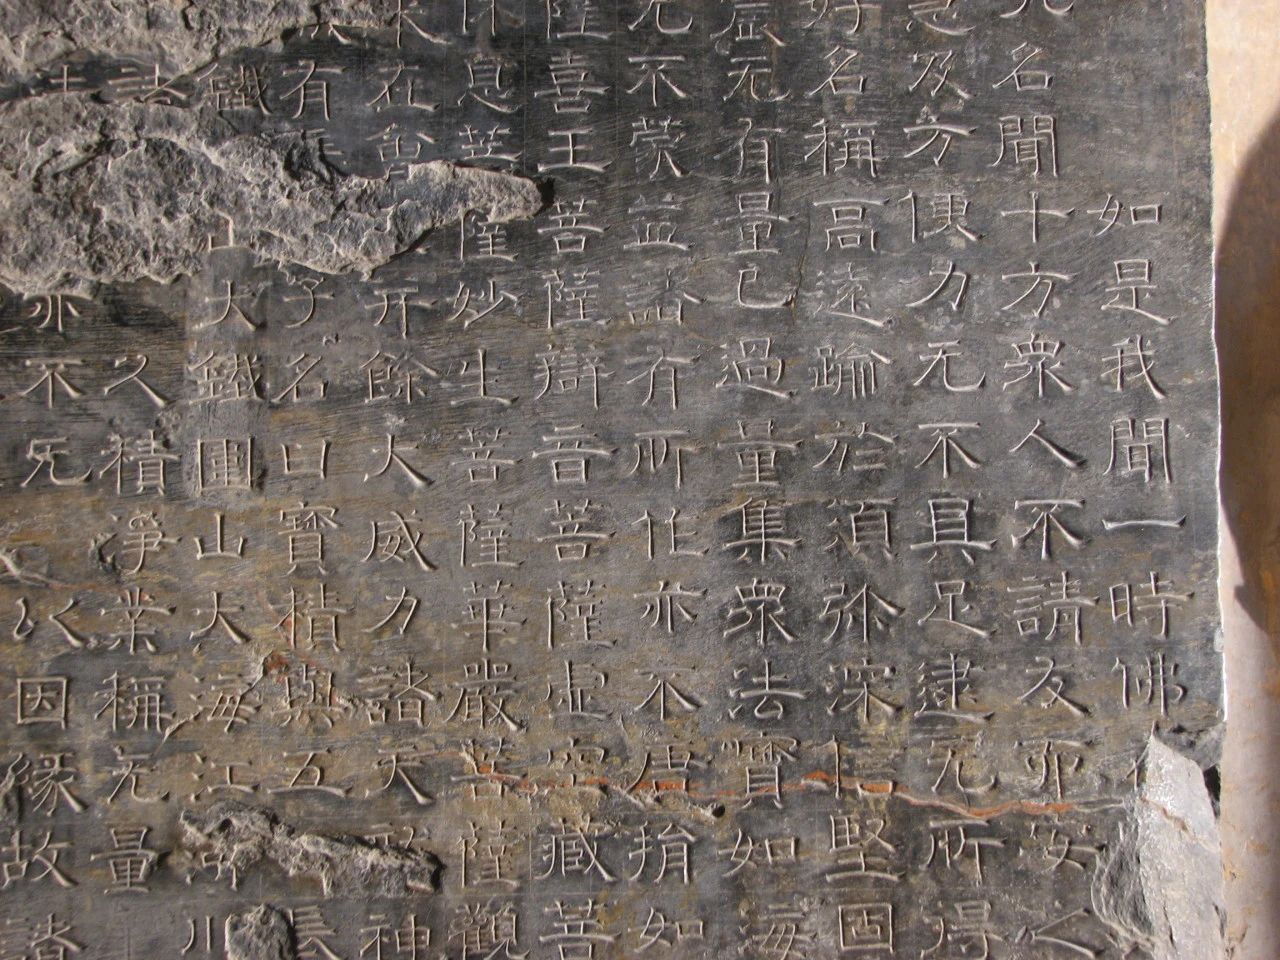 如是我聞一時佛
名聞十方衆人不請友而安之
及方便力无不具足逮无所得
好名稱高遠踰於須弥深信堅固
无有量已過量集衆法寶如海
无不蒙益諸有所作亦不唐捐如
薩喜王菩薩辯音菩薩虛空藏菩
休息菩薩妙生菩薩華嚴菩薩觀
來在會并餘大威力諸天神
有子名曰寶積與五長
鐵山大鐵圍山大海江川
諸久積淨業稱无量
亦不无以因緣故諸